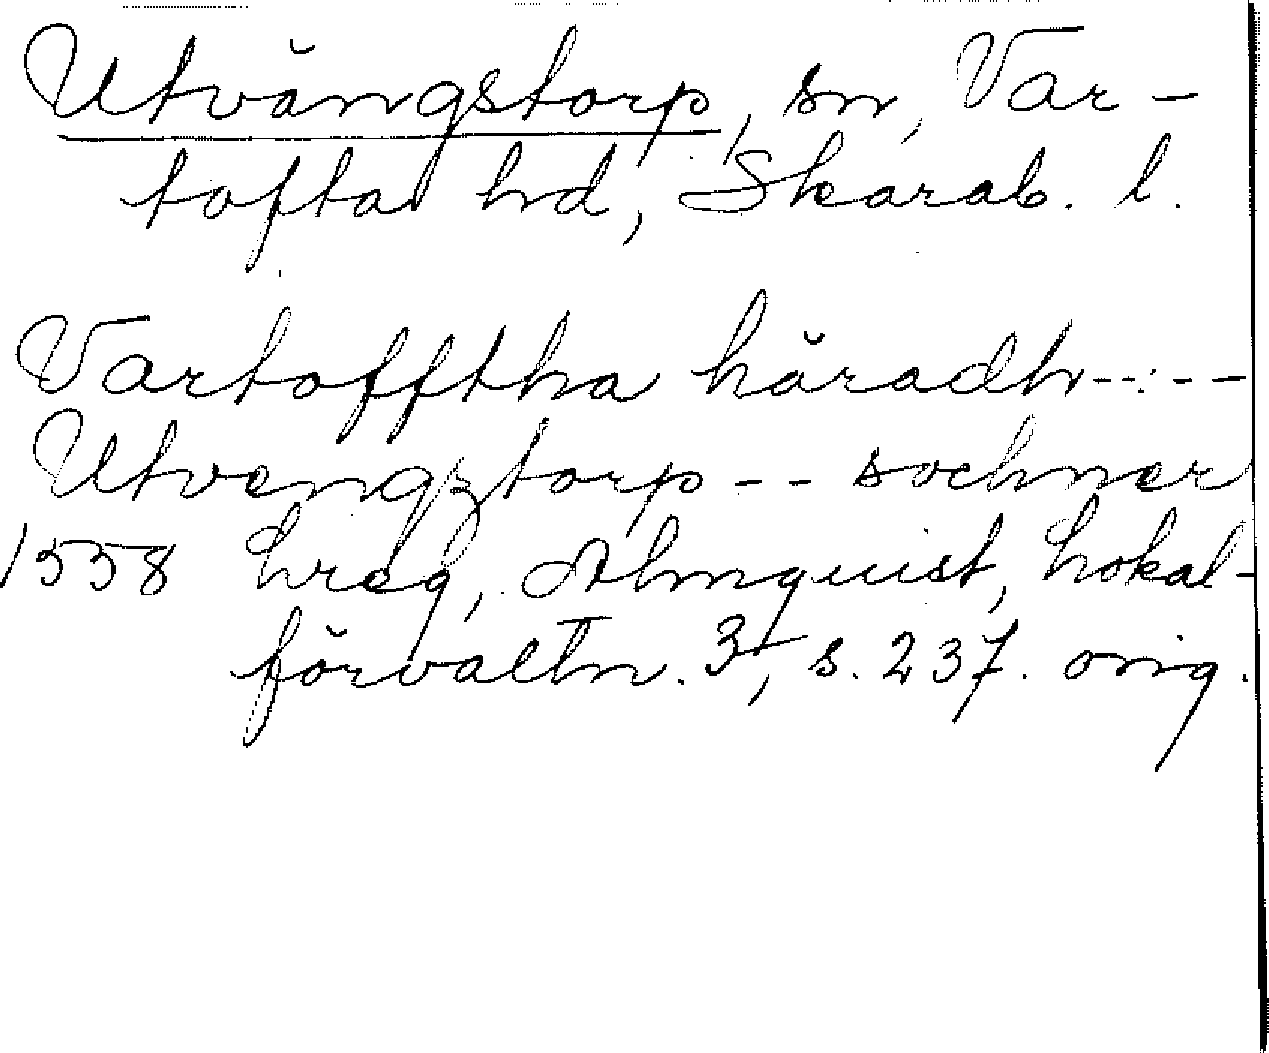 Utvängstorp, sn, Var-
tofta hd, Skarab. l.
Vartofftha häradh-----
Utvengztorp -- sochner
1558 Lreg, Almquist, Lokal-
förvaltn. 3, s. 237. orig.